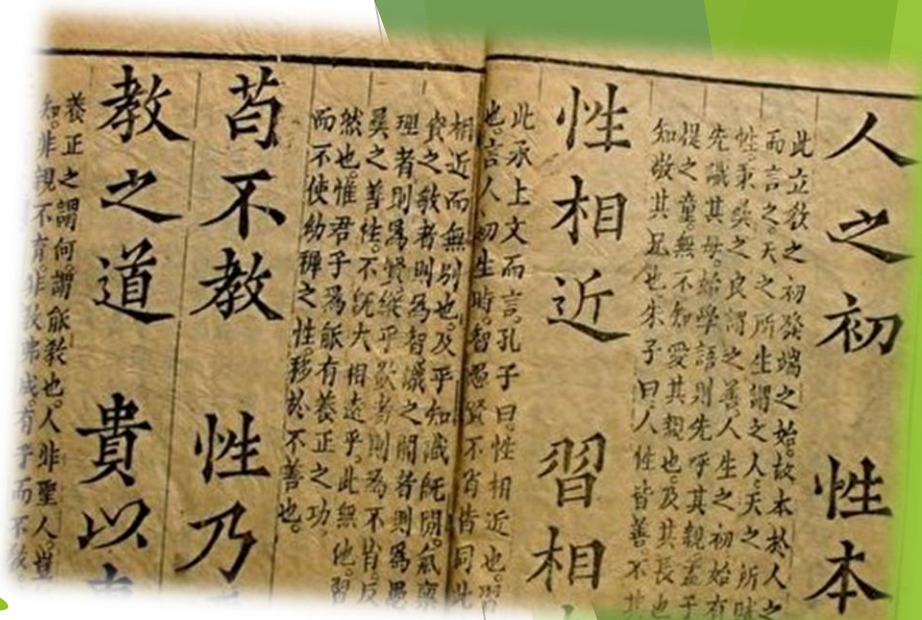 人之初 性本
此立教之初發端之始。故本於人之
而言之。天之所生謂之人。天之所賦
性。秉彝之良謂之善。人生之初始有
先識其母。始學語則先呼其親。孟子
提之童。無不知愛其親也。及其長也
知敬其兄也朱子曰人性皆善。不
性相近 習相
此承上文而言。孔子曰。性相近也。習
也。言人初生時智愚賢不肖皆同此
相近而無別也。及乎知識旣開。氣禀
資之敏者則爲智。識之闇者則爲愚
理者則爲賢。縱乎欲者則為不肖。反
之善性。不旣大相遠乎。此無他。習
然也。惟君子爲能有養正之功
而不使幼穉之性移於不善也。
苟不教 性乃
教之道 貴以
養正之謂何。謂能教也。人非聖人。豈
知。非親不育。非教弗成。有子而不